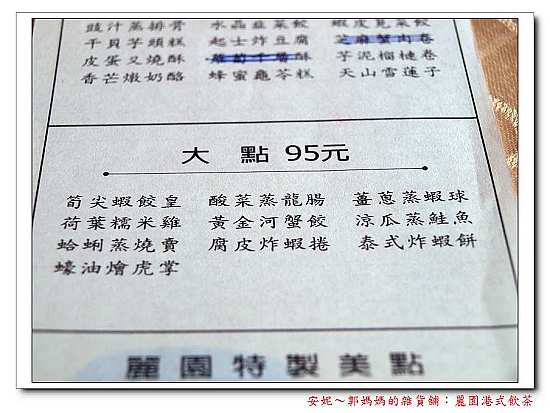 豉汁蒸排骨 水晶韭菜餃 蝦皮莧菜餃
干貝芋頭糕 起士炸豆腐 芝麻蟹肉卷
皮蛋叉燒酥 蘿蔔千層酥 芋泥榴槤卷
香芒燉奶酪 蜂蜜龜苓糕 天山雪蓮子
大點 95元
荀尖蝦餃皇 酸菜蒸龍腸 薑蔥蒸蝦球
荷葉糯米雞 黃金河蟹餃 涼瓜蒸鮭魚
蛤蜊蒸燒賣 腐皮炸蝦捲 泰式炸蝦餅
蠔油燴虎掌
麗園特製美點
安妮～郭媽媽的雜貨舖：麗園港式飲茶